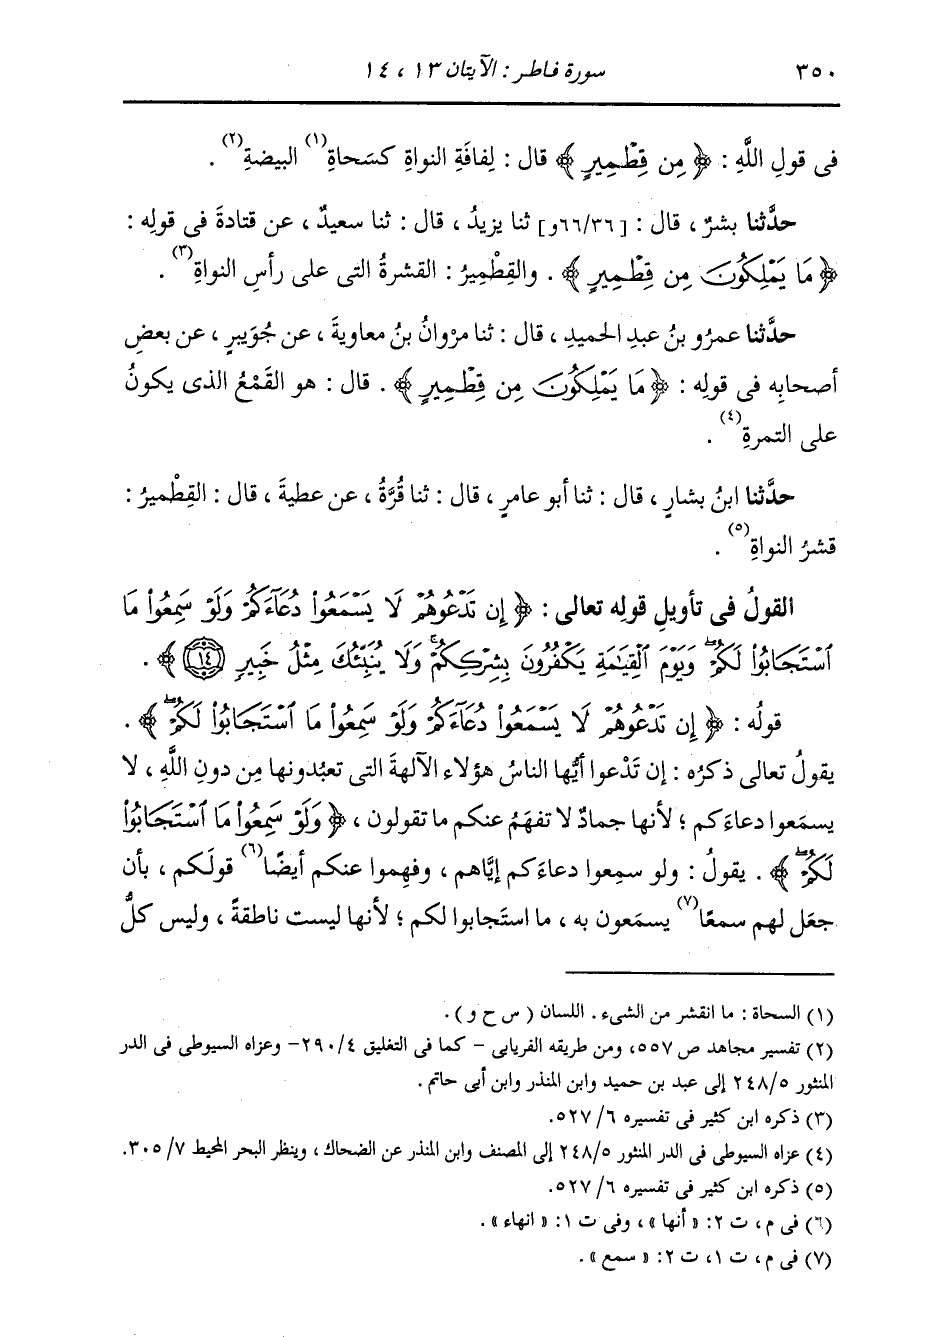 ٣٥٠ سورة فاطر : الآيتان ١٣ ، ١٤
فى قولِ اللَّهِ : ﴿ مِن قِطْمِيرٍ ﴾ قال : لِفافَةِ النواةِ كسَحاةِ(١) البيضةِ(٢) .
حدَّثنا بشرٌ ، قال : [٦٦/٣٦و] ثنا يزيدُ ، قال : ثنا سعيدٌ ، عن قتادةَ فى قولِه :
﴿ مَا يَمْلِكُونَ مِن قِطْمِيرٍ ﴾ . والقِطْمِيرُ : القشرةُ التى على رأسِ النواةِ(٣) .
حدَّثنا عمرُو بنُ عبدِ الحميدِ ، قال : ثنا مرْوانُ بنُ معاويةَ ، عن جُوَيبرٍ ، عن بعضِ
أصحابِه فى قولِه : ﴿ مَا يَمْلِكُونَ مِن قِطْمِيرٍ ﴾ . قال : هو القَمْعُ الذى يكونُ
على التمرةِ(٤) .
حدَّثنا ابنُ بشارٍ ، قال : ثنا أبو عامرٍ ، قال : ثنا قُرَّةُ ، عن عطيةَ ، قال : القِطْميرُ :
قشرُ النواةِ(٥) .
القولُ فى تأويلِ قولِه تعالى : ﴿ إِن تَدْعُوهُمْ لَا يَسْمَعُوا۟ دُعَآءَكُمْ وَلَوْ سَمِعُوا۟ مَا
ٱسْتَجَابُوا۟ لَكُمْۖ وَيَوْمَ ٱلْقِيَٰمَةِ يَكْفُرُونَ بِشِرْكِكُمْۚ وَلَا يُنَبِّئُكَ مِثْلُ خَبِيرٍ ۝١٤ ﴾ .
قولُه : ﴿ إِن تَدْعُوهُمْ لَا يَسْمَعُوا۟ دُعَآءَكُمْ وَلَوْ سَمِعُوا۟ مَا ٱسْتَجَابُوا۟ لَكُمْۖ ﴾ .
يقولُ تعالى ذكرُه : إن تَدْعوا أيُّها الناسُ هؤلاء الآلهةَ التى تعبُدونها مِن دونِ اللَّهِ ، لا
يسمَعوا دعاءَكم ؛ لأنها جمادٌ لا تفهَمُ عنكم ما تقولون ، ﴿ وَلَوْ سَمِعُوا۟ مَا ٱسْتَجَابُوا۟
لَكُمْۖ ﴾ . يقولُ : ولو سمِعوا دعاءَكم إيَّاهم ، وفهِموا عنكم أيضًا(٦) قولَكم ، بأن
جعَل لهم سمعًا(٧) يسمَعون به ، ما استَجابوا لكم ؛ لأنها ليست ناطقةً ، وليس كلُّ
(١) السحاة : ما انقشر من الشىء . اللسان ( س ح و ) .
(٢) تفسير مجاهد ص ٥٥٧، ومن طريقه الفريابى - كما فى التغليق ٢٩٠/٤- وعزاه السيوطى فى الدر
المنثور ٢٤٨/٥ إلى عبد بن حميد وابن المنذر وابن أبى حاتم .
(٣) ذكره ابن كثير فى تفسيره ٥٢٧/٦.
(٤) عزاه السيوطى فى الدر المنثور ٢٤٨/٥ إلى المصنف وابن المنذر عن الضحاك ، وينظر البحر المحيط ٣٠٥/٧.
(٥) ذكره ابن كثير فى تفسيره ٥٢٧/٦.
(٦) فى م ، ت ٢: « أنها » ، وفى ت ١: « انهاء » .
(٧) فى م ، ت ١، ت ٢: « سمع » .